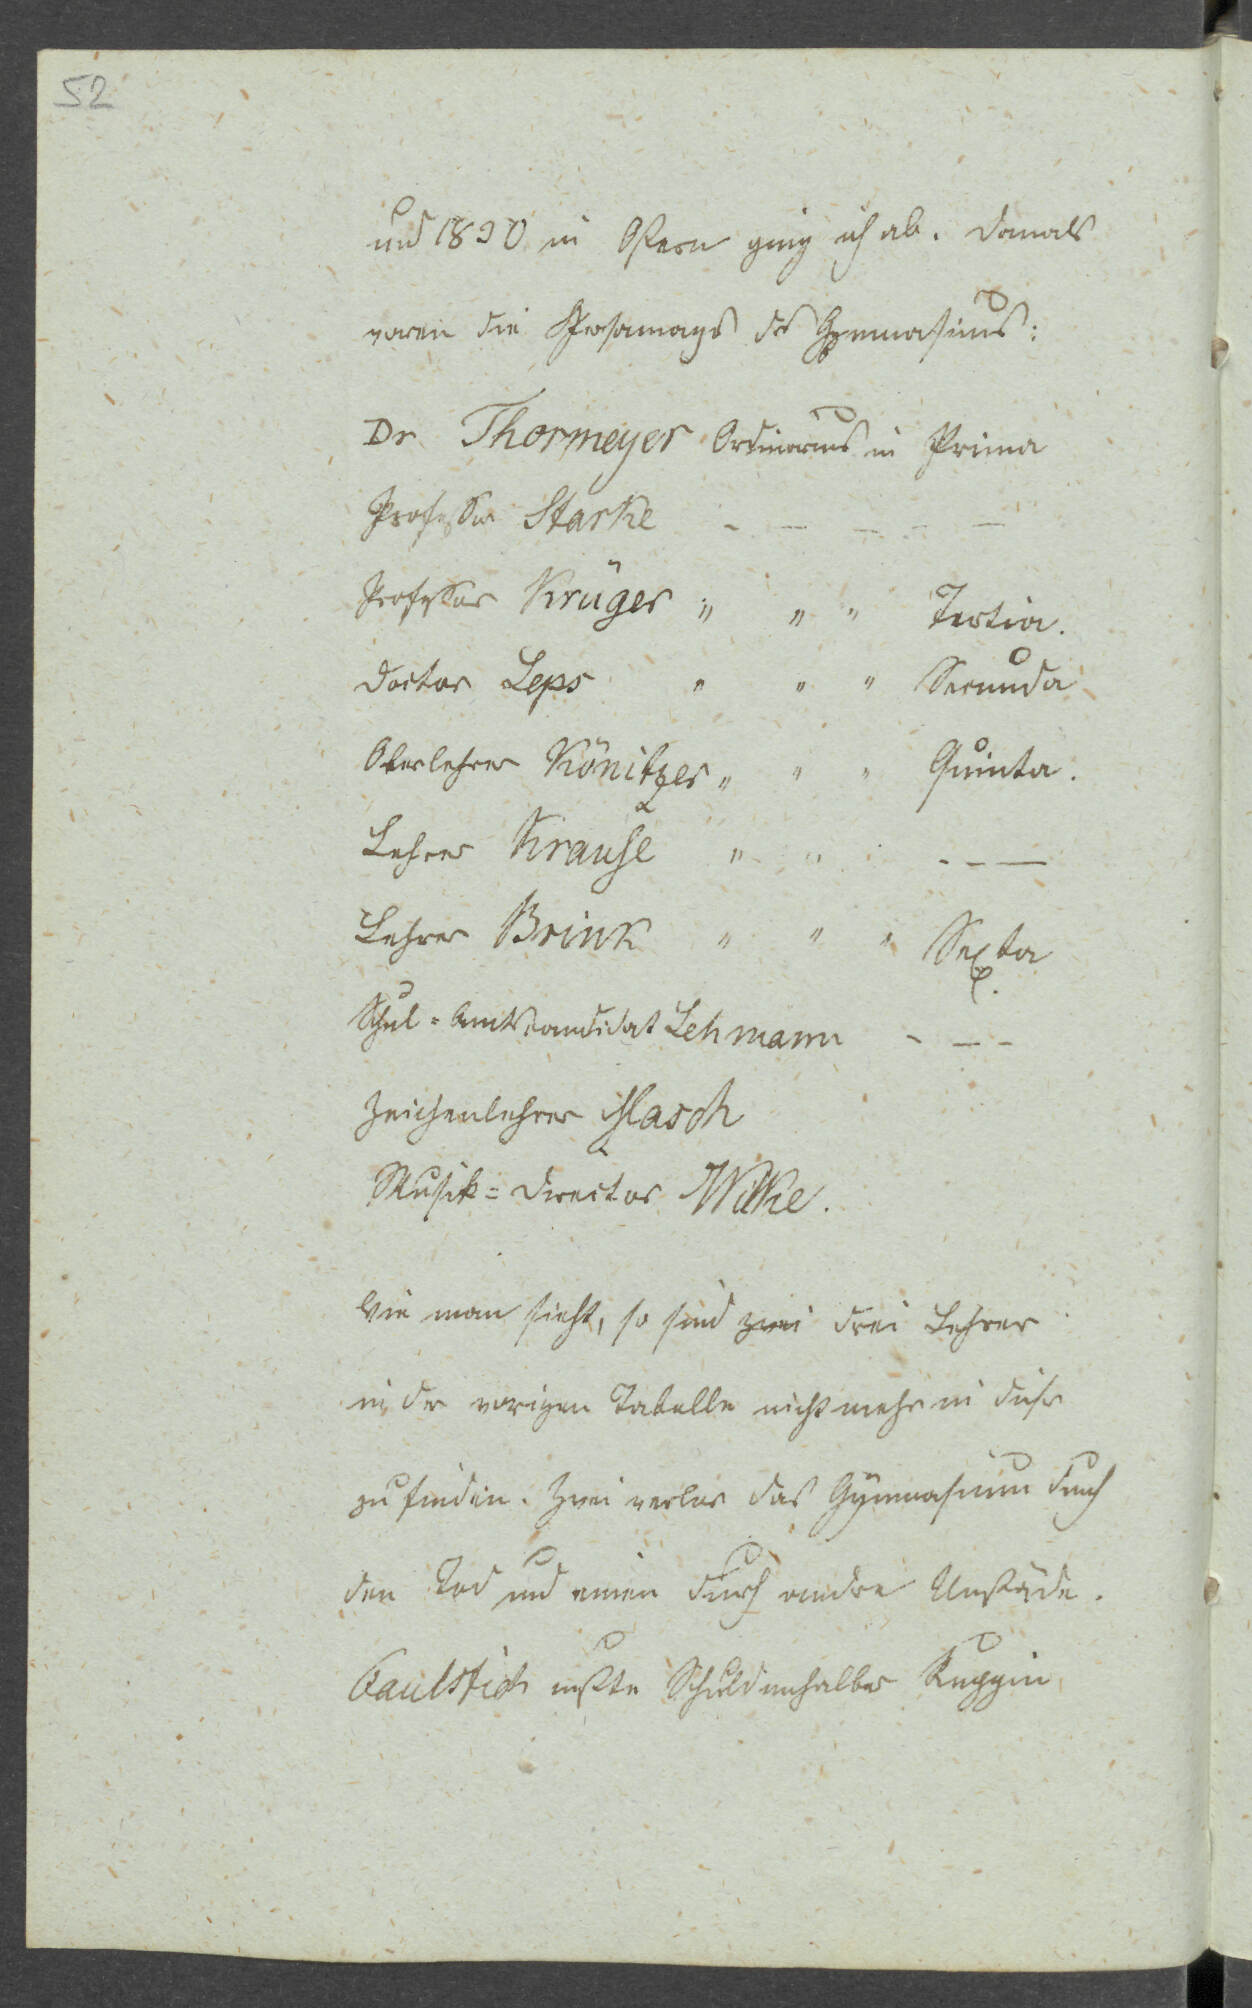 52
und 1830 in Ostern ging ich ab. Damals
waren die des Gymnasiums:
Dr Thormeyer Ordinarius in Prima
Professor Starke - - - - -
Professor Krüger " " " Tertia.
Doctor Leps " " " Secunda
Oberlehrer Könitzer " " " Quinta.
Lehrer Krause " " - - -
Lehrer Brink " " " Sexta
Schul=Amtscandidat Lehmann - - -
Zeichenlehrer Masch
Musik=Director Wilke.
Wie man sieht, so sind zwei drei Lehrer
in der vorigen Tabelle nicht mehr in dieser
zu finden. Zwei verlor das Gymnasium durch
den Tod und einen durch andre Umstände.
Faulstich mußte Schuldenhalber Ruppin